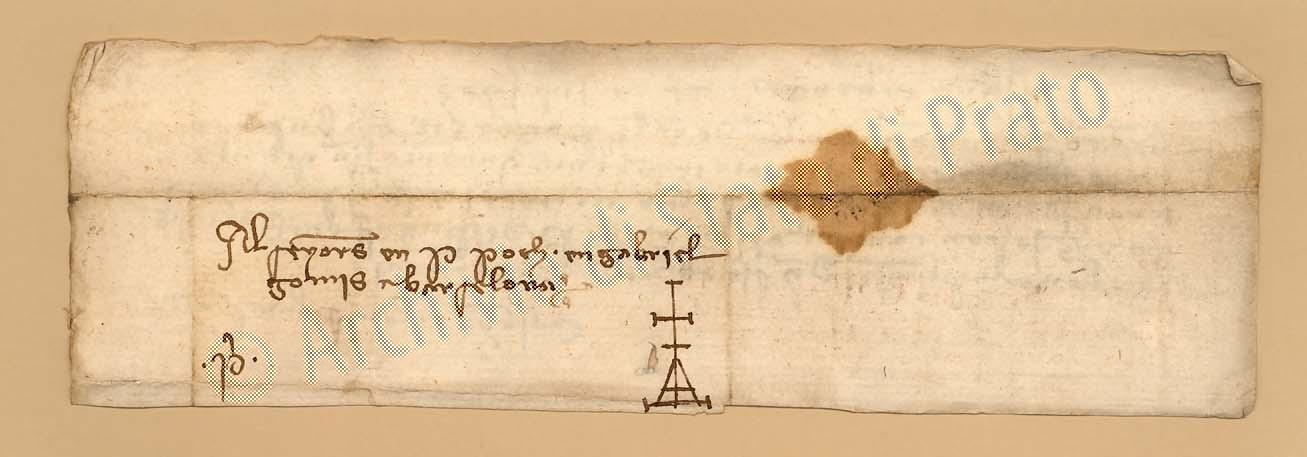 Als seyors en P poch. en gabriel
gomis a barselona
.p.
© Archivio di Stato di Prato